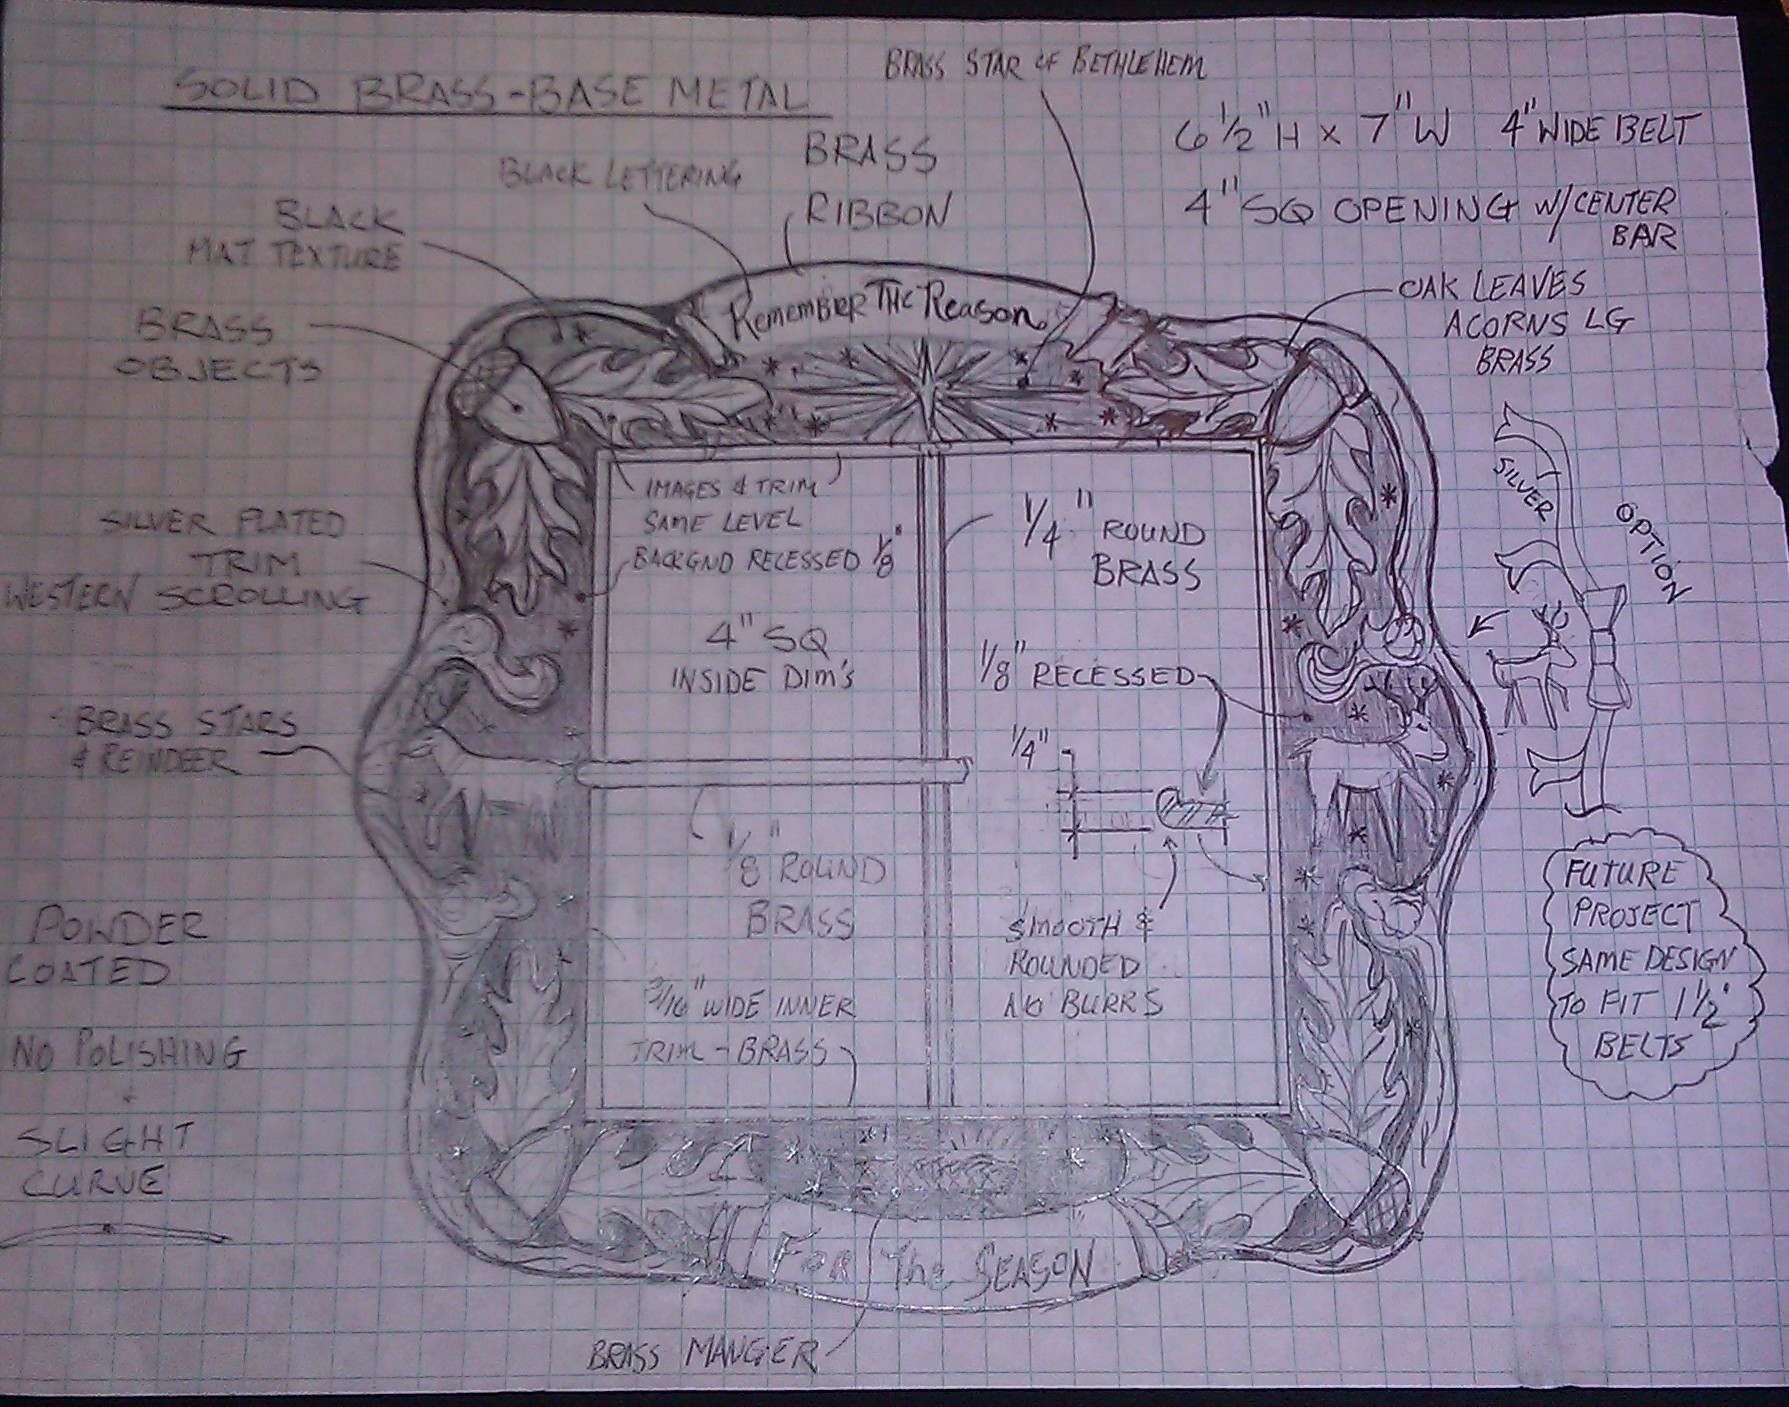 SOLID BRASS-BASE METAL
BRASS STAR OF BETHLEHEM
6 1/2" H x 7" W 4" WIDE BELT
4" SQ OPENING W/CENTER
BAR
BLACK LETTERING
BRASS
RIBBON
BLACK
MAT TEXTURE
BRASS
OBJECTS
OAK LEAVES
ACORNS LG
BRASS
Remember The Reason
SILVER
OPTION
IMAGES & TRIM
SAME LEVEL
BACKGND RECESSED 1/8"
1/4" ROUND
BRASS
SILVER PLATED
TRIM
WESTERN SCROLLING
4" SQ
INSIDE DIM's
1/8" RECESSED
BRASS STARS
& REINDEER
1/4"
1/8" ROUND
BRASS
SMOOTH &
ROUNDED
NO BURRS
3/16" WIDE INNER
TRIM - BRASS
POWDER
COATED
NO POLISHING
SLIGHT
CURVE
FUTURE
PROJECT
SAME DESIGN
TO FIT 1 1/2"
BELTS
For The SEASON
BRASS MANGER